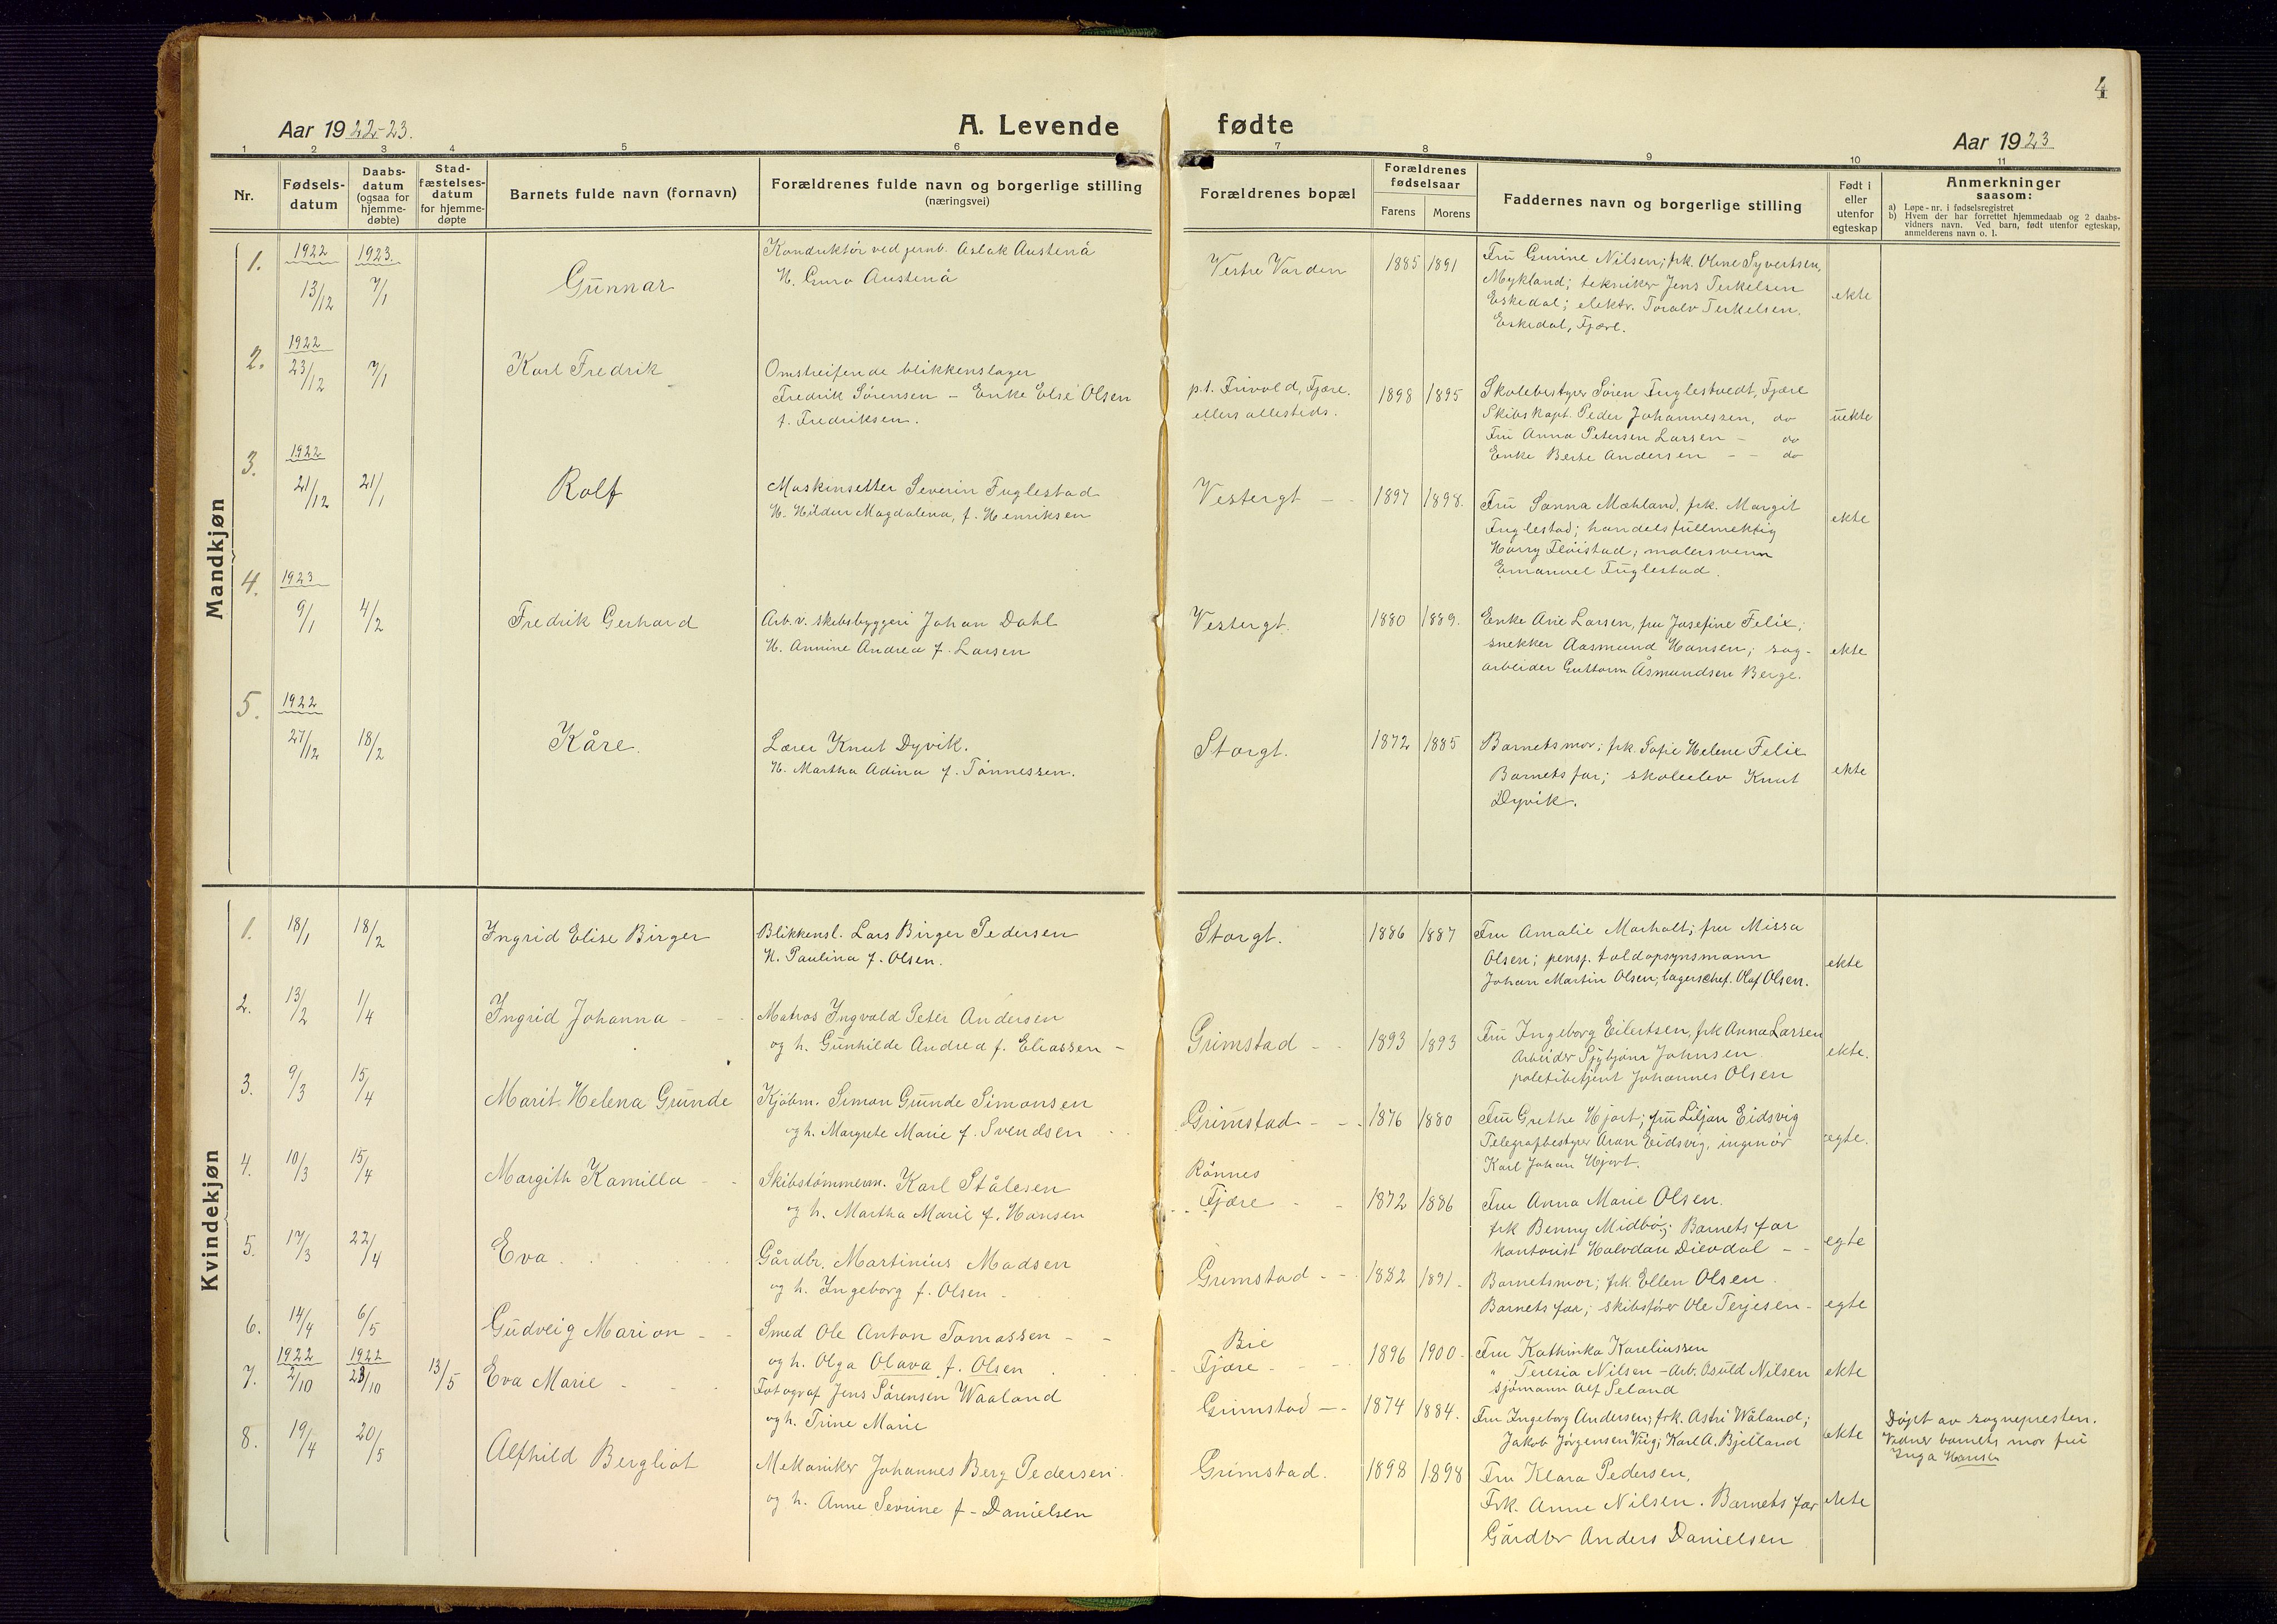 4
Aar 1922-23.
A. Levende fødte
Aar 1923
1 2 3 4 5 6 7 8 9 10 11
Nr.
Fødsels-
datum
Daabs-
datum
(ogsaa for
hjemme-
døbte)
Stad-
fæstelses-
datum
for hjemme-
døpte
Barnets fulde navn (fornavn)
Forældrenes fulde navn og borgerlige stilling
(næringsvei)
Forældrenes bopæl
Forældrenes
fødselsaar
Farens Morens
Faddernes navn og borgerlige stilling
Født i
eller
utenfor
egteskap
Anmerkninger
saasom:
a) Løpe-nr. i fødselsregistret
b) Hvem der har forrettet hjemmedaab og 2 daabs-
vidners navn. Ved barn, født utenfor egteskap,
anmelderens navn o. l.
Mandkjøn
1.
1922
13/12
1923.
7/1
Gunnar
Konduktør ved jernb. Aslak Austenå
H. Guro Austenå
Vestre Varden
1885 1891
Fru Gurine Nilsen; frk. Oline Syvertsen,
Mykland; tekniker Jens Terkelsen
Eskedal; elektr. Toralv Terkelsen.
Eskedal, Fjære.
ekte
2.
1922
23/12
7/1
Karl Fredrik
Omstreifende blikkenslager
Fredrik Sørensen – Enke Else Olsen
f. Fredriksen.
p.t. Frivold, Fjære.
ellers allesteds.
1898 1895
Skolebestyrer Søren Fuglestvedt, Fjære
Skibskapt. Peder Johannessen, do
Fru Anna Petersen Larsen – do
Enke Berte Andersen – – do
uekte
3.
1922
21/12
21/1
Rolf
Maskinsetter Severin Fuglestad
H. Hildur Magdalena, f. Henriksen
Vestergt – -
1897 1898.
Fru Sanna Mæhland, frk. Margit
Fuglestad; handelsfullmektig
Harry Fløistad; malersvenn
Emanuel Fuglestad.
ekte
4.
1923
9/1
4/2
Fredrik Gerhard
Arb. v. skibsbyggeri Johan Dahl
H. Annine Andrea f. Larsen
Vestergt.
1880 1889.
Enke Arie Larsen, fru Josefine Felix;
snekker Aasmund Hansen; sag-
arbeider Guttorm Åsmundsen Berge.
ekte
5.
1922
27/12
18/2
Kåre.
Lærer Knut Dyvik.
H. Martha Adina f. Tønnessen.
Storgt.
1872 1885
Barnets mor; frk. Sofie Helene Felix
Barnets far; skoleelev Knut
Dyvik.
ekte
Kvindekjøn
1.
18/1
18/2
Ingrid Elise Birger
Blikkensl. Lars Birger Pedersen
H. Paulina f. Olsen.
Storgt.
1886 1887
Fru Amalie Marholt; fru Missa
Olsen; pensj. toldopsynsmann
Johan Martin Olsen; lagerschef. Olaf Olsen.
ekte
2.
13/2
1/4
Ingrid Johanna - -
Matros Ingvald Peter Andersen
og h. Gunhilde Andrea f. Eliassen –
Grimstad - -
1893 1893
Fru Ingeborg Eilertsen, frk Anna Larsen
Arbeider Johnsen
politibetjent Johannes Olsen
ekte.
3.
9/3
15/4
Marit Helena Grunde
Kjøbm. Simon Grunde Simonsen
og h. Margrete Marie f. Svendsen
Grimstad - -
1876 1880
Fru Grethe Hjort; fru Liljan Eidsvig
Telegrafbestyrer Aran Eidsvig, ingeniør
Karl Johan Hjort.
egte.
4.
10/3
15/4
Margith Kamilla - -
Skibstømmerm. Karl Stålesen
og h. Martha Marie f. Hansen
Rønnes
Fjære - -
1872 1886
Fru Anna Marie Olsen.
frk Benny Midbø; Barnets far
kontorist Halvdan Diesdal - -
egte
5.
17/3
22/4
Eva
Gårdbr. Martinius Madsen
og h. Ingeborg f. Olsen -
Grimstad - -
1882 1891 -
Barnets mor; frk. Ellen Olsen.
Barnets far; skibsfører Ole Terjesen -
egte
6.
14/4
6/5
Gudveig Marion - -
Smed Ole Anton Tomassen - -
og h. Olga Olava f. Olsen
Bie
Fjære -
1896 1900 -
Fru Kathinka Kareliussen
" Teresia Nilsen – Arb. Osuld Nilsen
sjømann Alf Seland
ekte
7.
1922
2/10
1922
23/10
13/5
Eva Marie - -
Fotograf Jens Sørensen Waaland
og h. Trine Marie
Grimstad - -
1874 1884.
Fru Ingeborg Andersen; frk. Astri Wåland;
Jakob Jørgensen Viig; Karl A. Bjelland
ekte
Døpt av sognepresten.
Vidner barnets mor fru
Inga Hansen
8.
19/4
20/5
Alfhild Bergliot
Mekaniker Johannes Berg Pedersen.
og h. Anne Sevrine f - Danielsen
Grimstad.
1898 1898
Fru Klara Pedersen,
Frk. Anne Nilsen. Barnets far
Gårdbr Anders Danielsen
ekte